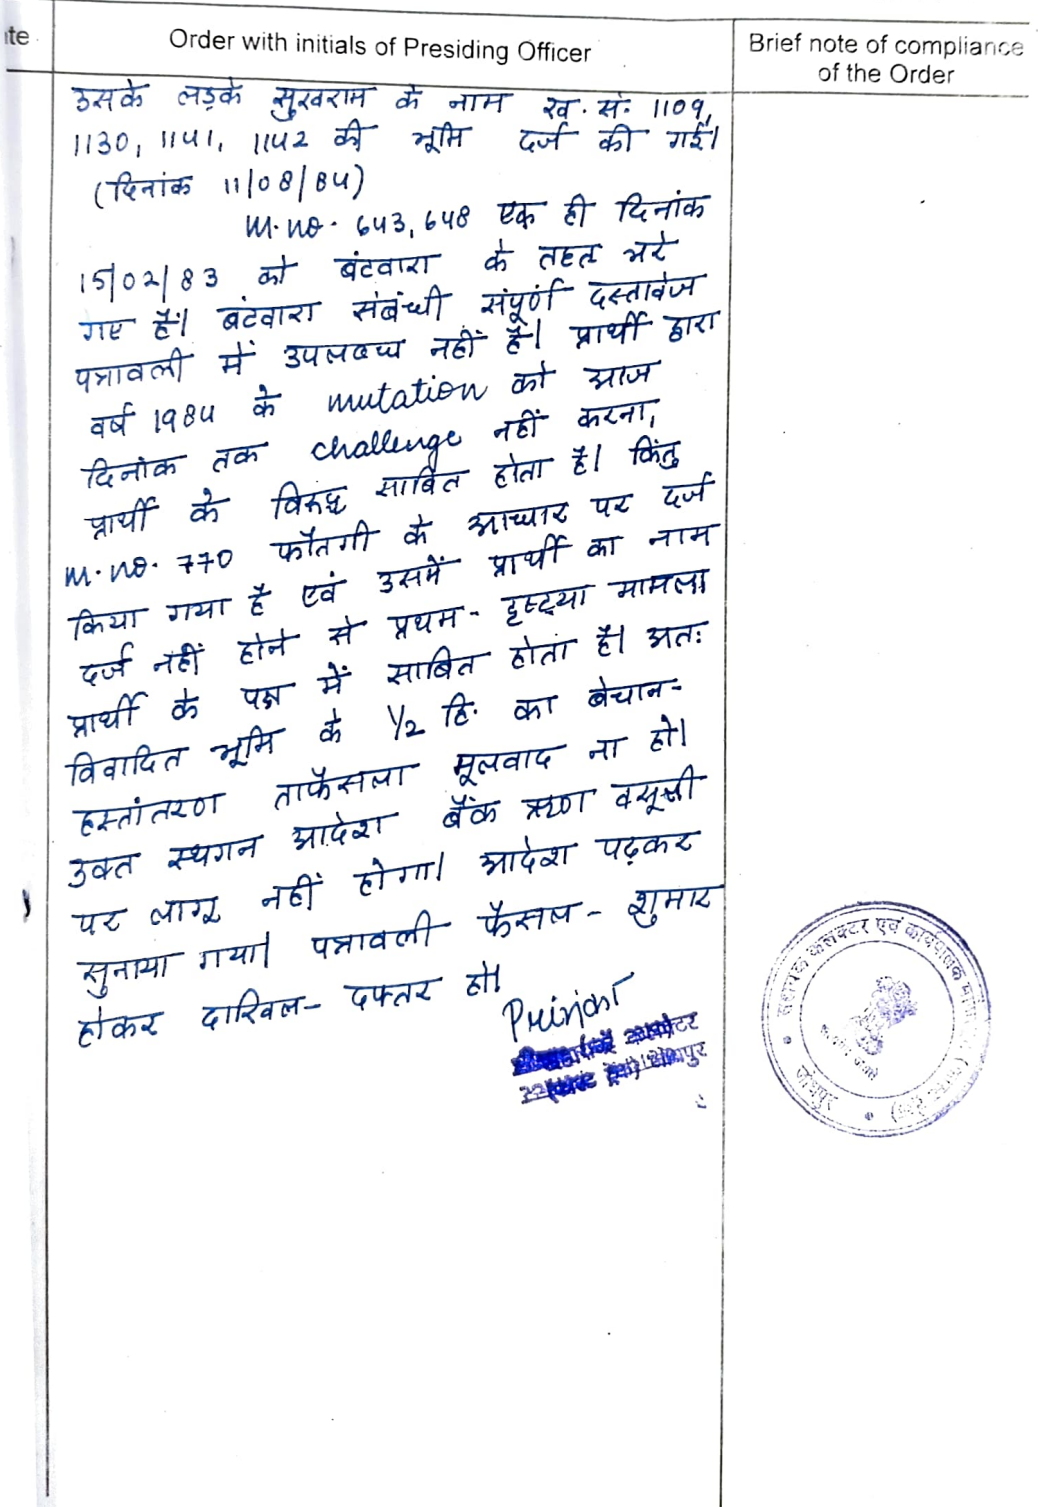 Order with initials of Presiding Officer
Brief note of compliance
of the Order
उसके लड़के सुखराम के नाम ख. सं. 1109,
1130, 1141, 1142 की भूमि दर्ज की गई।
(दिनांक 11/08/84)
M. no. 643, 648 एक ही दिनांक
15/02/83 को बंटवारा के तहत भरे
गए हैं। बंटवारा संबंधी संपूर्ण दस्तावेज
पत्रावली में उपलब्ध नहीं है। प्रार्थी द्वारा
वर्ष 1984 के mutation को आज
दिनांक तक challenge नहीं करना,
प्रार्थी के विरुद्ध साबित होता है। किंतु
M. no. 770 फौतगी के आधार पर दर्ज
किया गया है एवं उसमें प्रार्थी का नाम
दर्ज नहीं होने से प्रथम - दृष्ट्या मामला
प्रार्थी के पक्ष में साबित होता है। अतः
विवादित भूमि के 1/2 हि. का बेचान-
हस्तांतरण ताफैसला मूलवाद ना हो।
उक्त स्थगन आदेश बैंक ऋण वसूली
पर लागू नहीं होगा। आदेश पढ़कर
सुनाया गया। पत्रावली फैसल - शुमार
होकर दाखिल - दफ्तर हो।
सहायक कलक्टर एवं कार्यपालक
जोधपुर